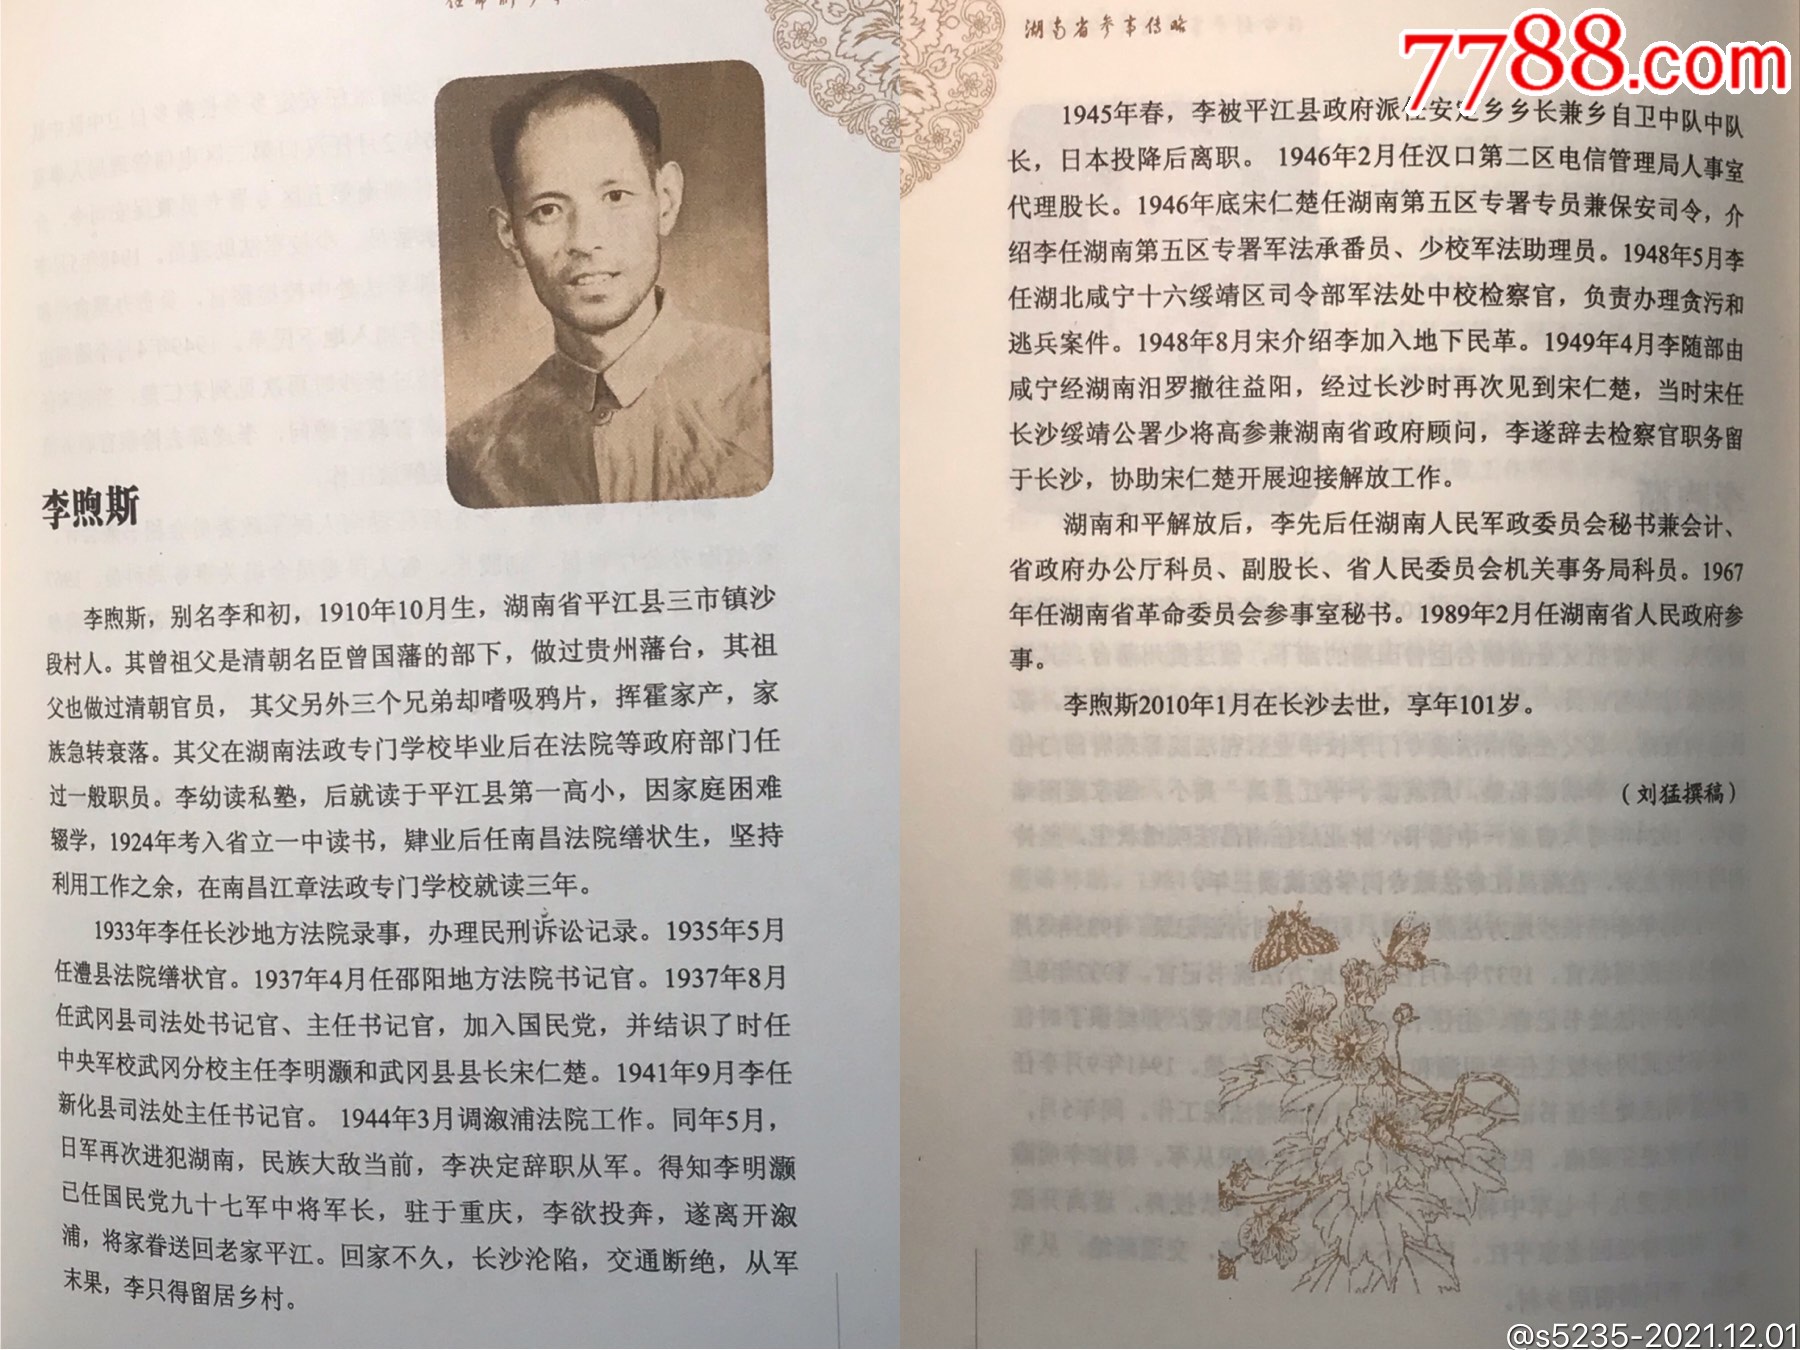 李煦斯
李煦斯，别名李和初，1910年10月生，湖南省平江县三市镇沙
段村人。其曾祖父是清朝名臣曾国藩的部下，做过贵州藩台，其祖
父也做过清朝官员， 其父另外三个兄弟却嗜吸鸦片，挥霍家产，家
族急转衰落。其父在湖南法政专门学校毕业后在法院等政府部门任
过一般职员。李幼读私塾，后就读于平江县第一高小，因家庭困难
辍学，1924年考入省立一中读书，肄业后任南昌法院缮状生，坚持
利用工作之余，在南昌江章法政专门学校就读三年。
1933年李任长沙地方法院录事，办理民刑诉讼记录。1935年5月
任澧县法院缮状官。1937年4月任邵阳地方法院书记官。1937年8月
任武冈县司法处书记官、主任书记官，加入国民党，并结识了时任
中央军校武冈分校主任李明灏和武冈县县长宋仁楚。1941年9月李任
新化县司法处主任书记官。 1944年3月调溆浦法院工作。同年5月，
日军再次进犯湖南，民族大敌当前，李决定辞职从军。得知李明灏
已任国民党九十七军中将军长，驻于重庆，李欲投奔，遂离开溆
浦，将家眷送回老家平江。回家不久，长沙沦陷，交通断绝，从军
末果，李只得留居乡村。
湖南省参事传略
7788.com
1945年春，李被平江县政府派任安定乡乡长兼乡自卫中队中队
长，日本投降后离职。 1946年2月任汉口第二区电信管理局人事室
代理股长。1946年底宋仁楚任湖南第五区专署专员兼保安司令，介
绍李任湖南第五区专署军法承番员、少校军法助理员。1948年5月李
任湖北咸宁十六绥靖区司令部军法处中校检察官，负责办理贪污和
逃兵案件。1948年8月宋介绍李加入地下民革。1949年4月李随部由
咸宁经湖南汨罗撤往益阳，经过长沙时再次见到宋仁楚，当时宋任
长沙绥靖公署少将高参兼湖南省政府顾问，李遂辞去检察官职务留
于长沙，协助宋仁楚开展迎接解放工作。
湖南和平解放后，李先后任湖南人民军政委员会秘书兼会计、
省政府办公厅科员、副股长、省人民委员会机关事务局科员。1967
年任湖南省革命委员会参事室秘书。1989年2月任湖南省人民政府参
事。
李煦斯2010年1月在长沙去世，享年101岁。
（刘猛撰稿）
@s5235-2021.12.01